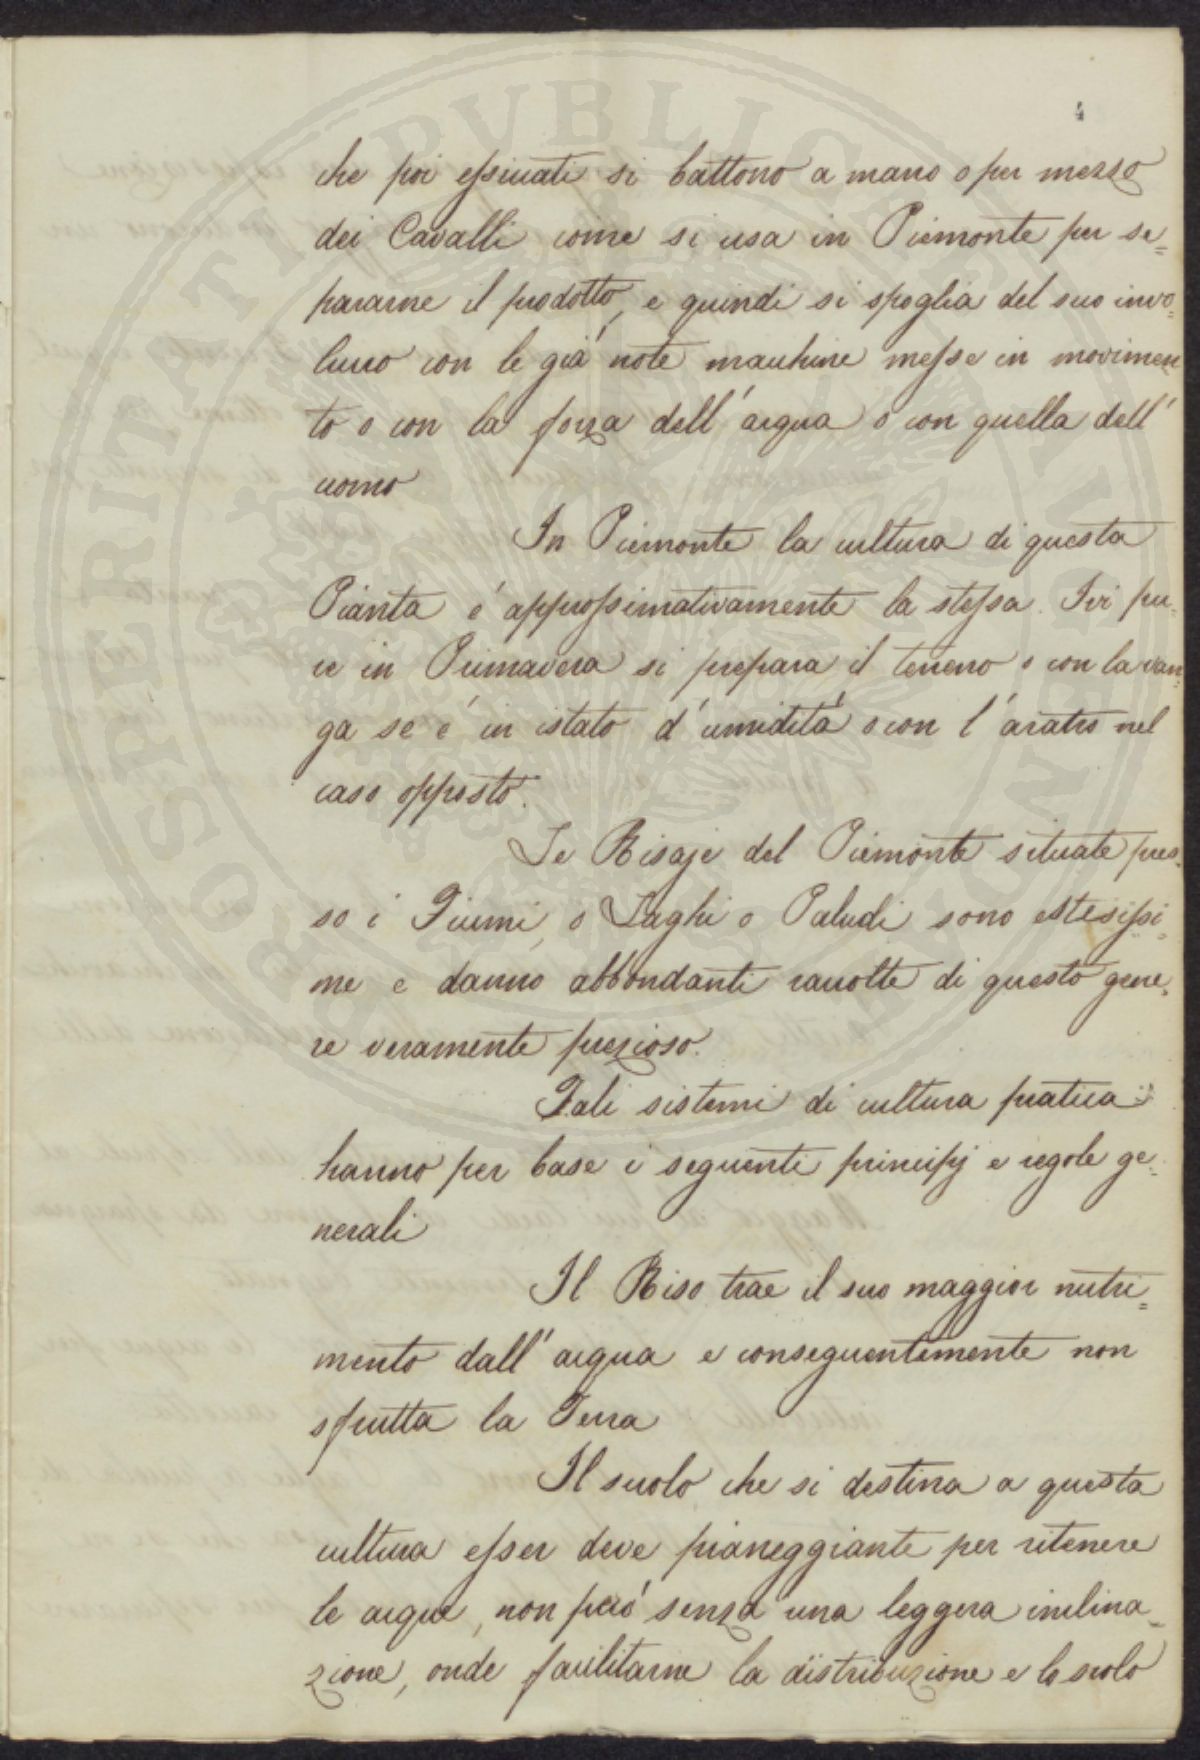 4
che poi essiccati si battono a mano o per mezzo
dei Cavalli come si usa in Piemonte per se=
pararne il prodotto, e quindi si spoglia del suo invo=
lucro con le già note macchine messe in movimen
to o con la forza dell'acqua o con quella dell'
uomo
In Piemonte la cultura di questa
Pianta é approssimativamente la stessa. Ivi pu=
re in Primavera si prepara il terreno o con la van=
ga se é in istato d'umidità o con l'aratro nel
caso opposto.
Le Risaje del Piemonte situate pres=
so i Fiumi, o Laghi o Paludi sono estesissi=
me e danno abbondanti raccolte di questo gene=
re veramente prezioso.
Tali sistemi di cultura pratica
hanno per base i seguenti principj e regole ge=
nerali
Il Riso trae il suo maggior nutri=
mento dall'acqua e conseguentemente non
sfrutta la Terra
Il suolo che si destina a questa
cultura esser deve pianeggiante per ritenere
le acque, non però senza una leggera inclina=
zione, onde facilitarne la distribuzione e lo scolo
PROSPERITATI PUBLICAE AVGENDAE